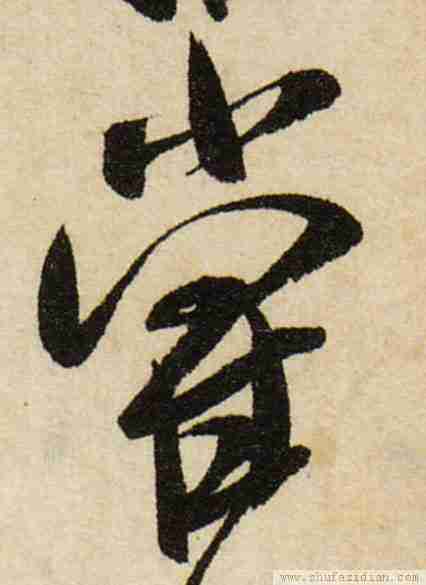 嘗
www.shufazidian.com